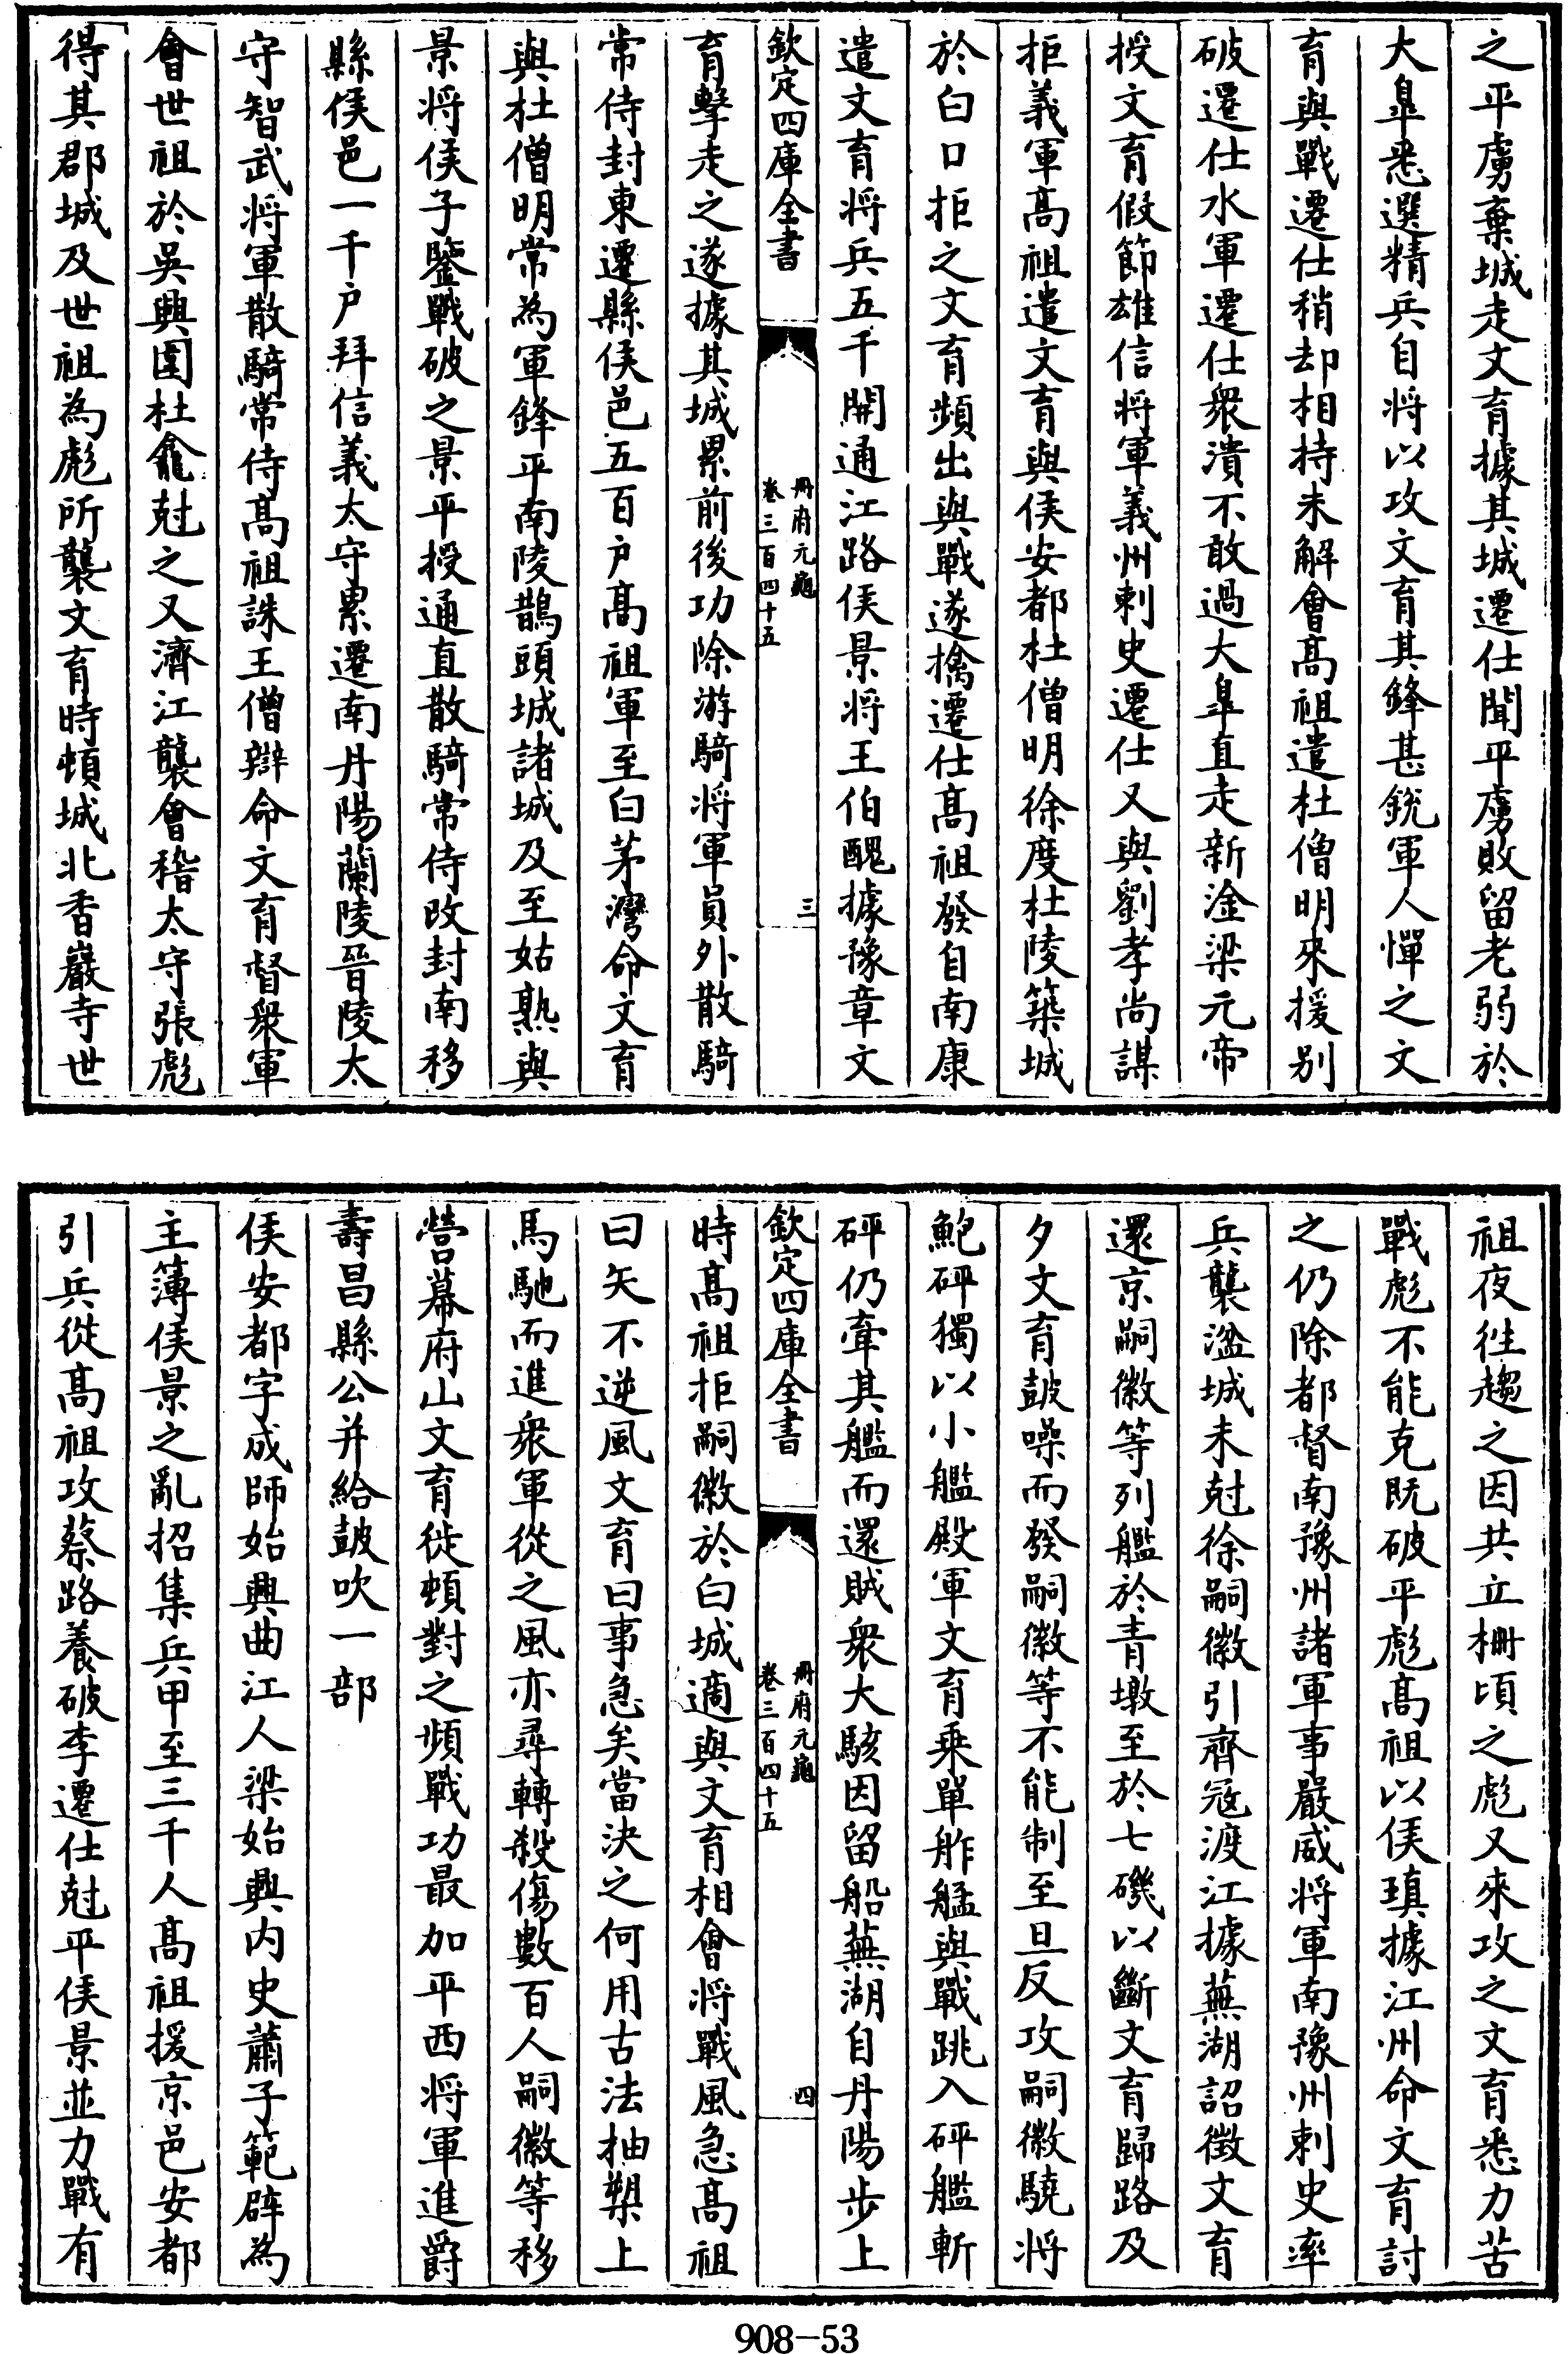 之平虜棄城走文育據其城遷仕聞平虜敗留老弱於
大臯悉選精兵自將以攻文育其鋒甚銳軍人憚之文
育與戰遷仕稍却相持未解會髙祖遣杜僧明來援别
破遷仕水軍遷仕衆潰不敢過大臯直走新淦梁元帝
授文育假節雄信將軍義州刺史遷仕又與劉孝尚謀
拒義軍髙祖遣文育與侯安都杜僧明徐度杜陵築城
於白口拒之文育頻出與戰遂擒遷仕髙祖發自南康
遣文育將兵五千開通江路侯景將王伯醜據豫章文
欽定四庫全書
冊府元龜
卷三百四十五
三
育擊走之遂據其城累前後功除游騎將軍員外散騎
常侍封東遷縣侯邑五百户髙祖軍至白茅灣命文育
與杜僧明常為軍鋒平南陵鵲頭城諸城及至姑熟與
景將侯子鑒戰破之景平授通直散騎常侍改封南移
縣侯邑一千户拜信義太守累遷南丹陽蘭陵晉陵太
守智武將軍散騎常侍髙祖誅王僧辯命文育督衆軍
會世祖於吳興圍杜龕尅之又濟江襲會稽太守張彪
得其郡城及世祖為彪所襲文育時頓城北香巖寺世
祖夜往趨之因共立柵頃之彪又來攻之文育悉力苦
戰彪不能克既破平彪髙祖以侯瑱據江州命文育討
之仍除都督南豫州諸軍事嚴威將軍南豫州刺史率
兵襲湓城未尅徐嗣徽引齊寇渡江據蕪湖詔徵文育
還京嗣徽等列艦於青墩至於七磯以斷文育歸路及
夕文育鼓噪而發嗣徽等不能制至旦反攻嗣徽驍將
鮑砰獨以小艦殿軍文育乗單舴艋與戰跳入砰艦斬
砰仍牽其艦而還賊衆大駭因留船蕪湖自丹陽步上
欽定四庫全書
冊府元龜
卷三百四十五
四
時髙祖拒嗣徽於白城適與文育相會將戰風急髙祖
曰矢不逆風文育曰事急矣當決之何用古法抽槊上
馬馳而進衆軍從之風亦尋轉殺傷數百人嗣徽等移
營幕府山文育徙頓對之頻戰功最加平西將軍進爵
壽昌縣公并給鼓吹一部
侯安都字成師始興曲江人梁始興内史蕭子範辟為
主簿侯景之亂招集兵甲至三千人髙祖援京邑安都
引兵從髙祖攻蔡路養破李遷仕尅平侯景並力戰有
908-53